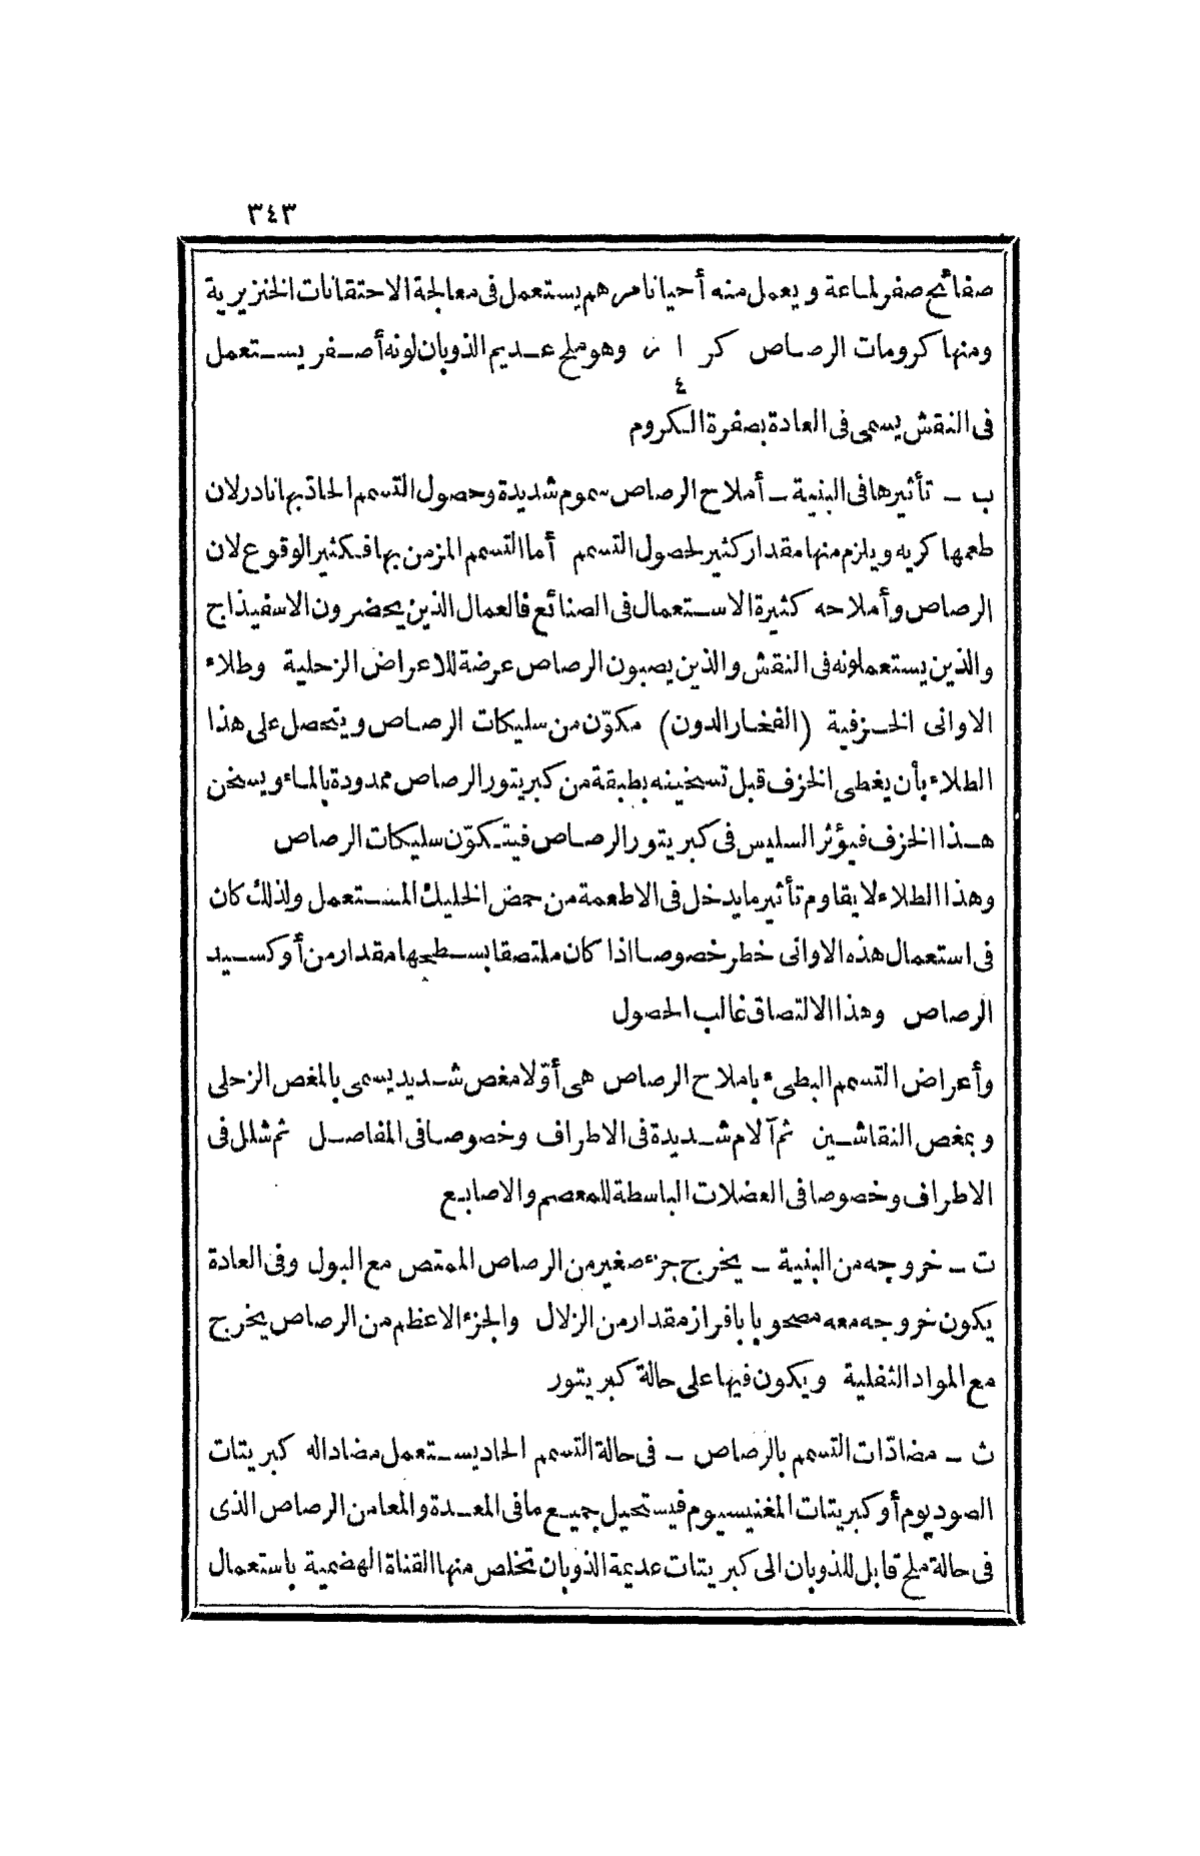 ٣٤٣
صفائح صفر لماعة ويعمل منه أحيانا مرهم يستعمل فى معالجة الاحتقانات الخنزيرية
ومنها كرومات الرصاص كر ا ر وهو ملح عديم الذوبان لونه أصفر يستعمل
٤
فى النقش يسمى فى العادة بصفرة الكروم
ب ـ تأثيرها فى البنية ـ أملاح الرصاص سموم شديدة وحصول التسمم الحاد بها نادر لان
طعمها كريه ويلزم منها مقدار كثير لحصول التسمم أما التسمم المزمن بها فكثير الوقوع لان
الرصاص وأملاحه كثيرة الاستعمال فى الصنائع فالعمال الذين يحضرون الاسفيذاج
والذين يستعملونه فى النقش والذين يصبون الرصاص عرضة للاعراض الزحلية وطلاء
الاوانى الخزفية (الفخار الدون) مكوّن من سليكات الرصاص ويتحصل على هذا
الطلاء بأن يغطى الخزف قبل تسخينه بطبقة من كبريتور الرصاص ممدودة بالماء ويسخن
هذا الخزف فيؤثر السليس فى كبريتور الرصاص فيتكوّن سليكات الرصاص
وهذا الطلاء لا يقاوم تأثير ما يدخل فى الاطعمة من حمض الخليك المستعمل ولذلك كان
فى استعمال هذه الاوانى خطر خصوصا اذا كان ملتصقا بسطحها مقدار من أوكسيد
الرصاص وهذا الالتصاق غالب الحصول
وأعراض التسمم البطىء باملاح الرصاص هى أوّلا مغص شديد يسمى بالمغص الزحلى
وبمغص النقاشين ثم آلام شديدة فى الاطراف وخصوصا فى المفاصل ثم شلل فى
الاطراف وخصوصا فى العضلات الباسطة للمعصم والاصابع
ت ـ خروجه من البنية ـ يخرج جزء صغير من الرصاص الممتص مع البول وفى العادة
يكون خروجه معه مصحوبا بافراز مقدار من الزلال والجزء الاعظم من الرصاص يخرج
مع المواد الثفلية ويكون فيها على حالة كبريتور
ث ـ مضادّات التسمم بالرصاص ـ فى حالة التسمم الحاد يستعمل مضادا له كبريتات
الصوديوم أو كبريتات المغنيسيوم فيستحيل جميع ما فى المعدة والمعا من الرصاص الذى
فى حالة ملح قابل للذوبان الى كبريتات عديمة الذوبان تخلص منها القناة الهضمية باستعمال